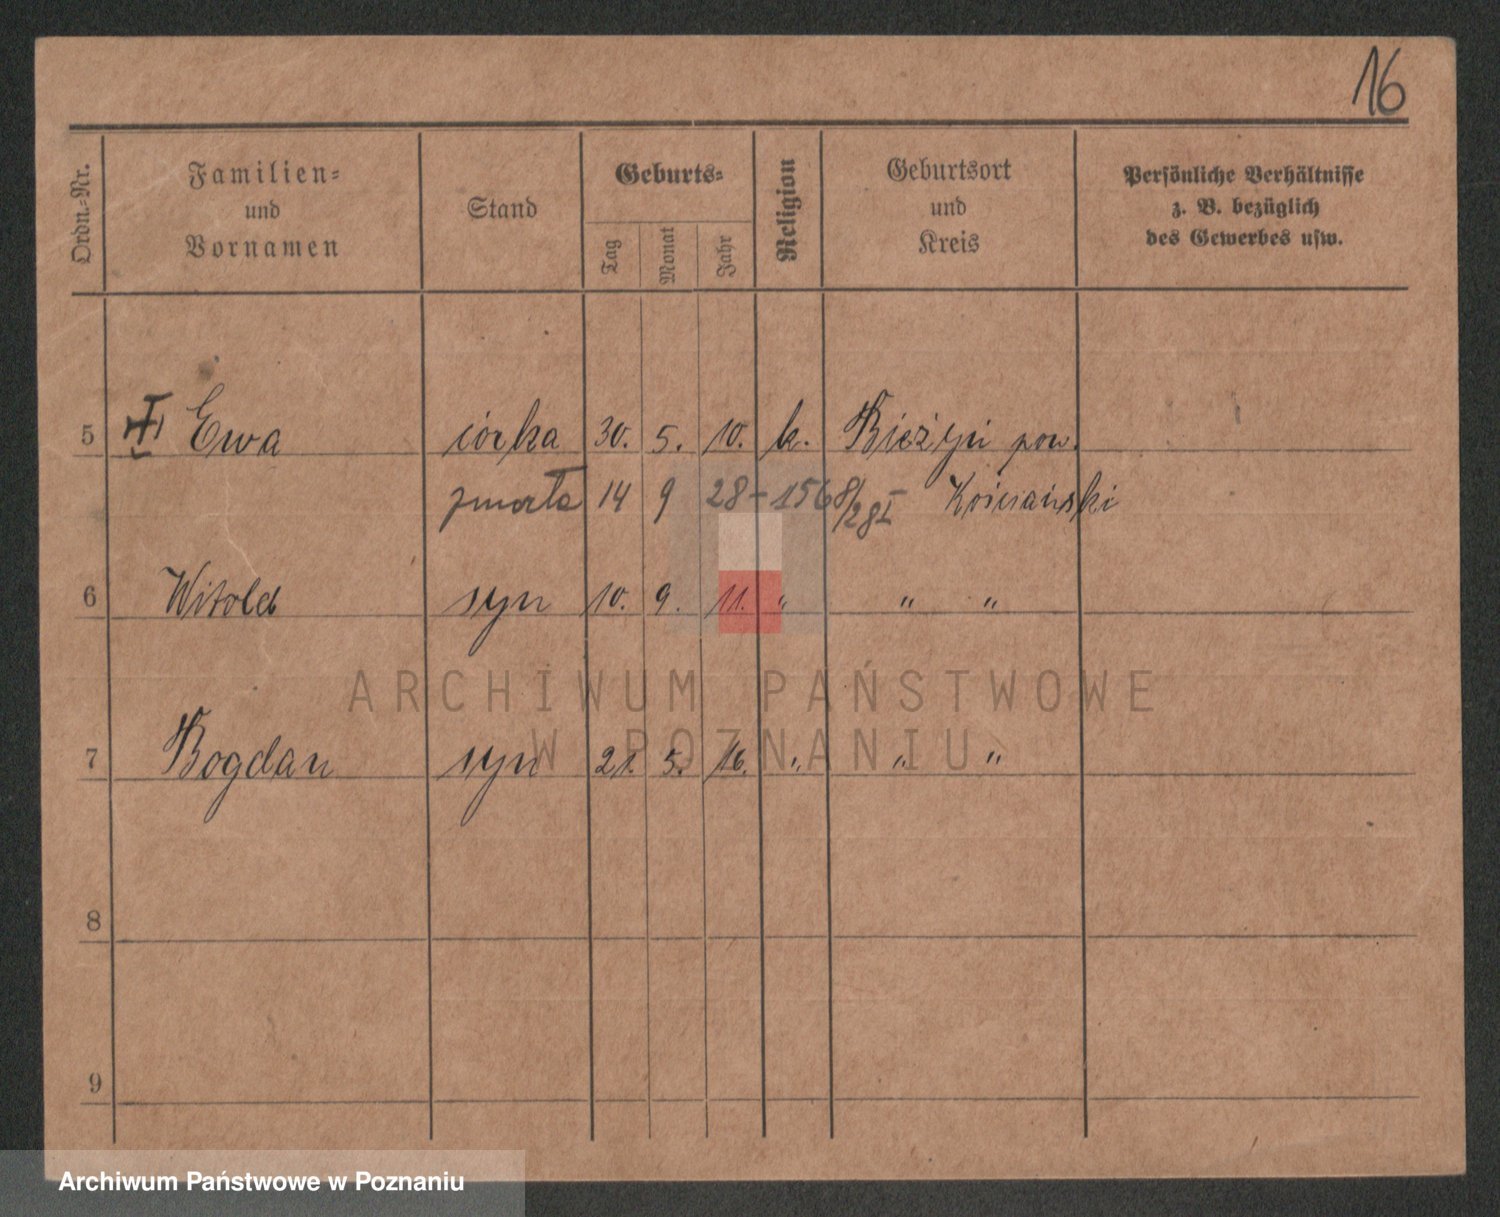 16
Ordn.-Nr.
Familien=
und
Vornamen
Stand
Geburts=
Tag
Monat
Jahr
Religion
Geburtsort
und
Kreis
Persönliche Verhältnisse
z. B. bezüglich
des Gewerbes usw.
5 Ewa córka 30. 5. 10. k. Bieżyń pow.
zmarła 14 9 28 - 1568/28 I Kościański
6 Witold syn 10. 9. 11. " " "
ARCHIWUM PAŃSTWOWE
W POZNANIU
7 Bogdan syn 21. 5. 16. " " "
8
9
Archiwum Państwowe w Poznaniu